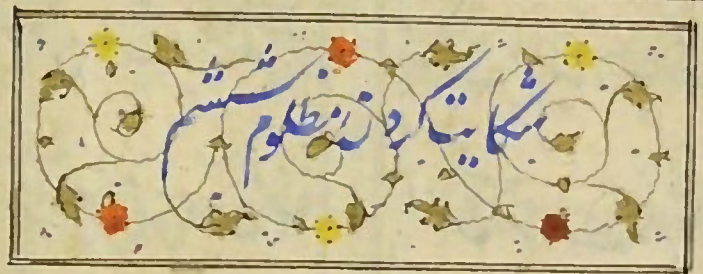 شکایت کردن مظلوم ششم